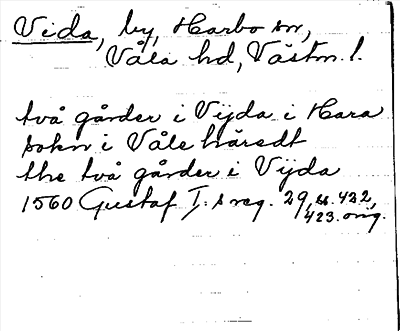 Vida, by, Harbo sn,
Våla hd, Västm. l.
två gårder i Vijda i Hara
sokn i Våle häredt
the två gårder i Vijda
1560 Gustaf I:s reg. 29, ss. 422,
423. orig.